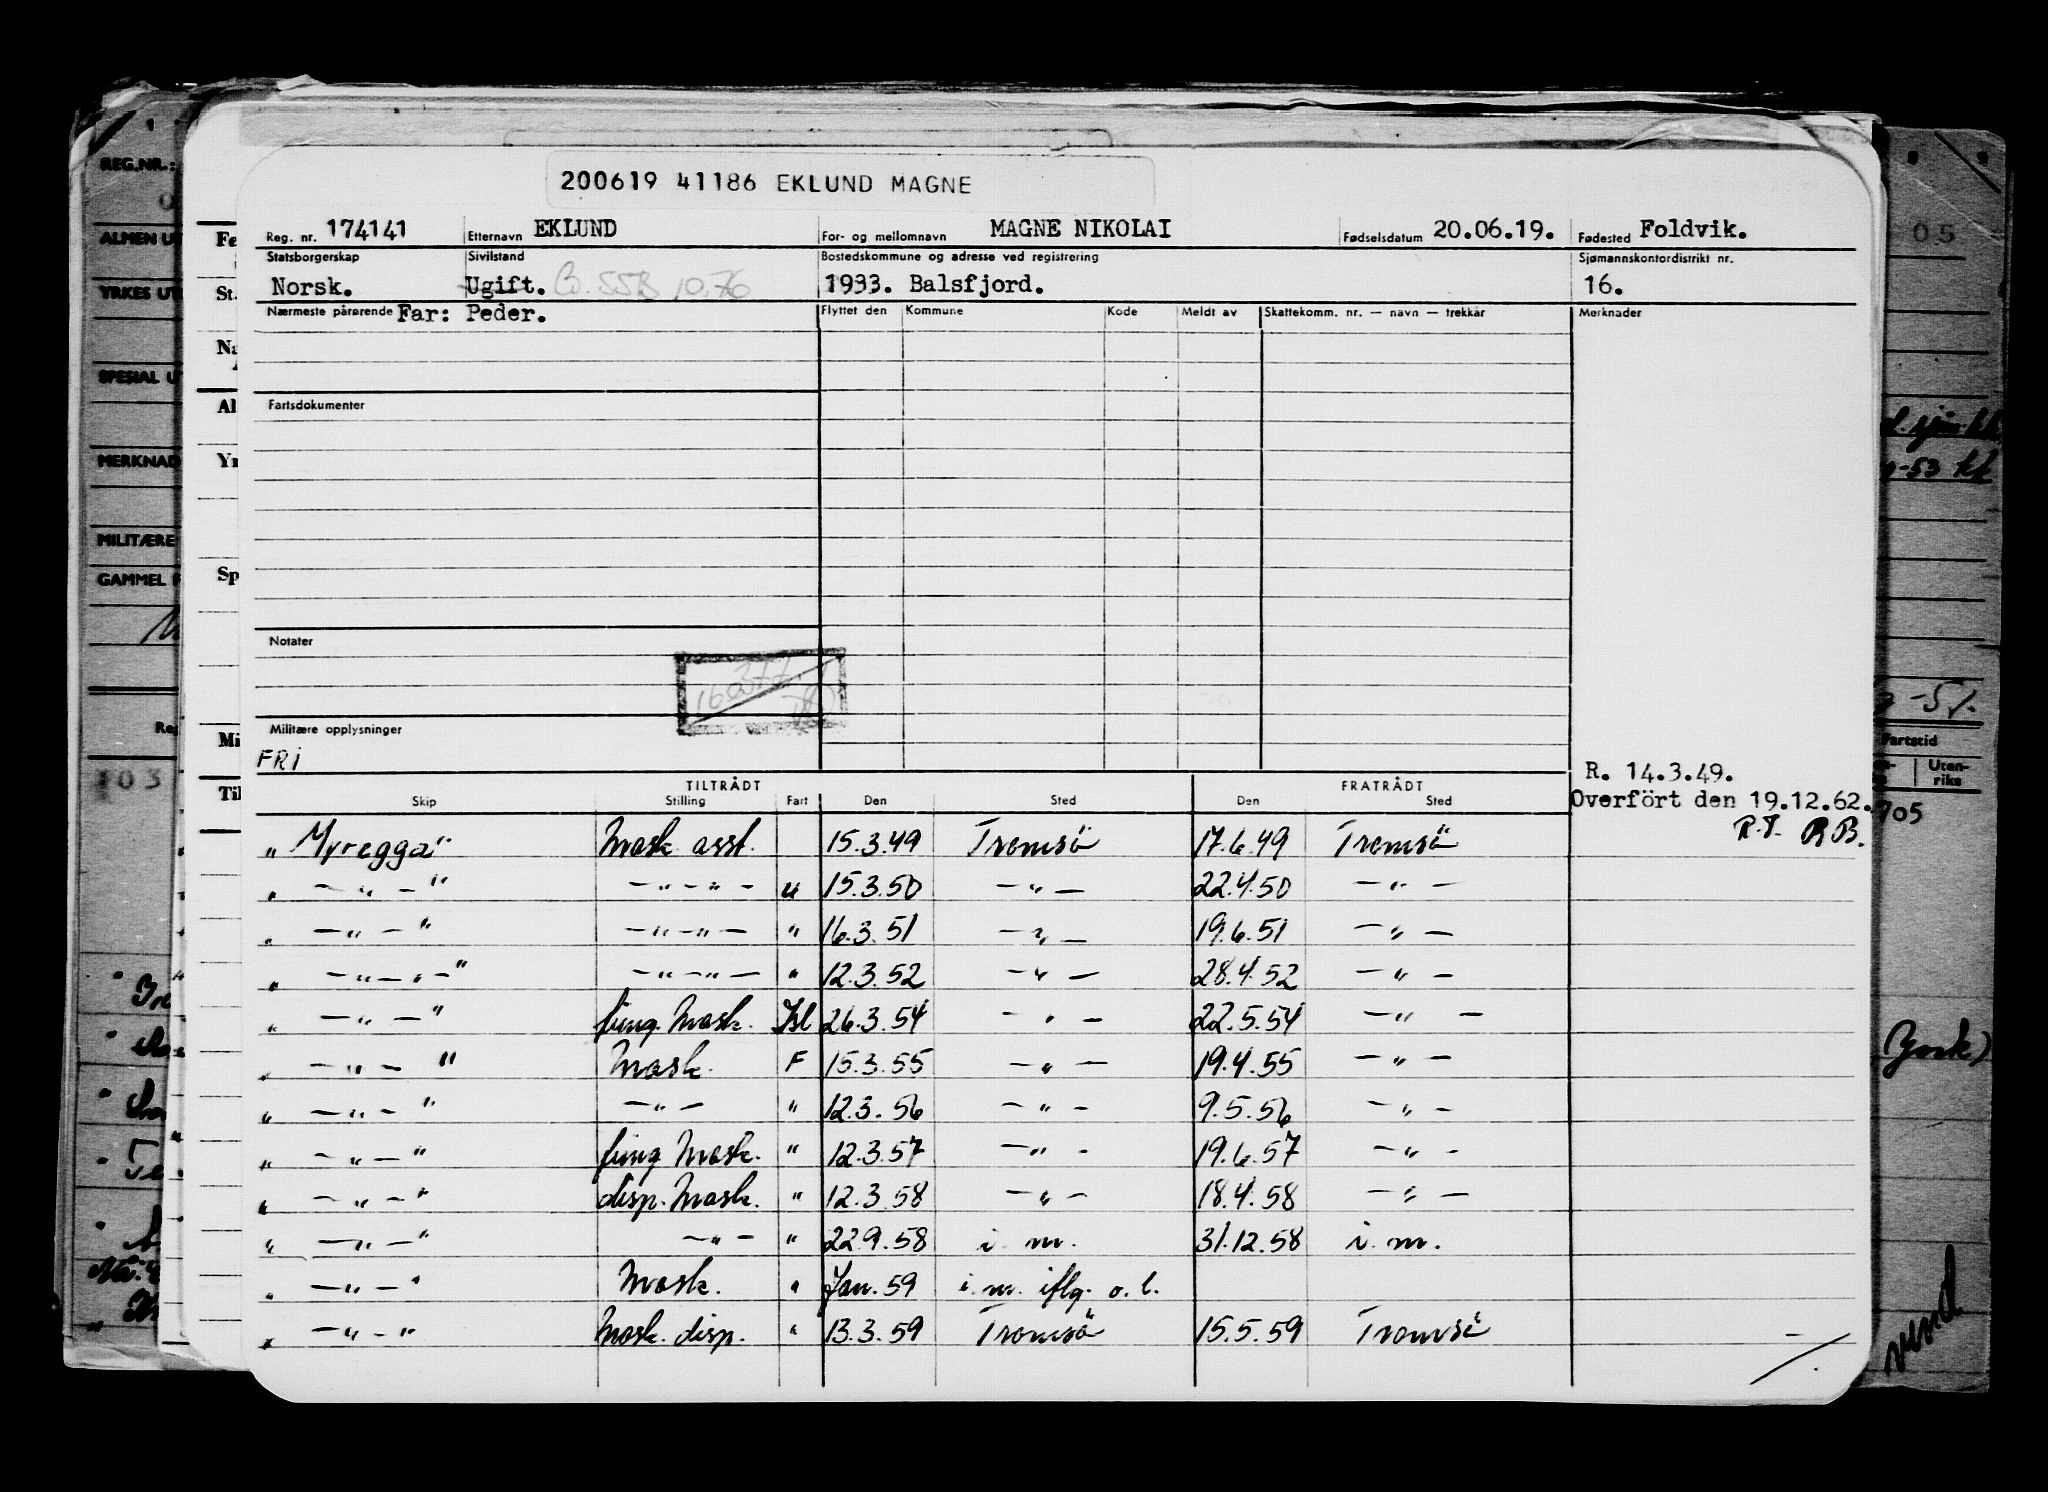 200619 41186 EKLUND MAGNE
Reg. nr. 174141 Etternavn EKLUND For- og mellomnavn MAGNE NIKOLAI Fødselsdatum 20.06.19. Fødested Foldvik.
Statsborgerskap Sivilstand Bostedskommune og adresse ved registrering Sjømannskontordistrikt nr.
Norsk. Ugift. 10.76 1933. Balsfjord. 16.
Nærmeste pårørende Far: Peder. Flyttet den Kommune Kode Meldt av Skattekomm. nr. — navn — trekkår Merknader
Fartsdokumenter
Notater
Militære opplysninger
FRI
R. 14.3.49.
TILTRÅDT FRATRÅDT
Skip Stilling Fart Den Sted Den Sted
Overfört den 19.12.62.
R.T. RB.
„ Myregga" Mask asst. 15.3.49 Tromsö 17.6.49 Tromsö
„ — „ — " — „ — „ — u 15.3.50 — „ — 22.4.50 — „ —
„ — „ — " — „ — „ — " 16.3.51 — „ — 19.6.51 — „ —
„ — „ — „ — " — „ — „ — " 12.3.52 — „ — 28.4.52 — „ —
„ — „ — " fung. Mask. Isl 26.3.54 — „ — 22.5.54 — „ —
„ — „ — " Mask. F 15.3.55 — „ — 19.4.55 — „ —
„ — „ — " — „ — " 12.3.56 — „ — 9.5.56 — „ —
„ — „ — " fung Mask. " 12.3.57 — „ — 19.6.57 — „ —
„ — „ — " disp. Mask. " 12.3.58 — „ — 18.4.58 — „ —
„ — „ — " — „ — " 22.9.58 i. m. 31.12.58 i. m.
„ — „ — " Mask. " Jan. 59 i. m. iflg. o. l.
„ — „ — " Mask. disp. " 13.3.59 Tromsö 15.5.59 Tromsö
REG.NR.:
ALMEN U
YRKES UT
SPESIAL U
MERKNAD
MILITÆRE
GAMMEL
Fe
St.
Na
Al
Yr
Sp
Mi
Til
103
05
-53
-51.
Fartstid
Uten-
riks
705
vend